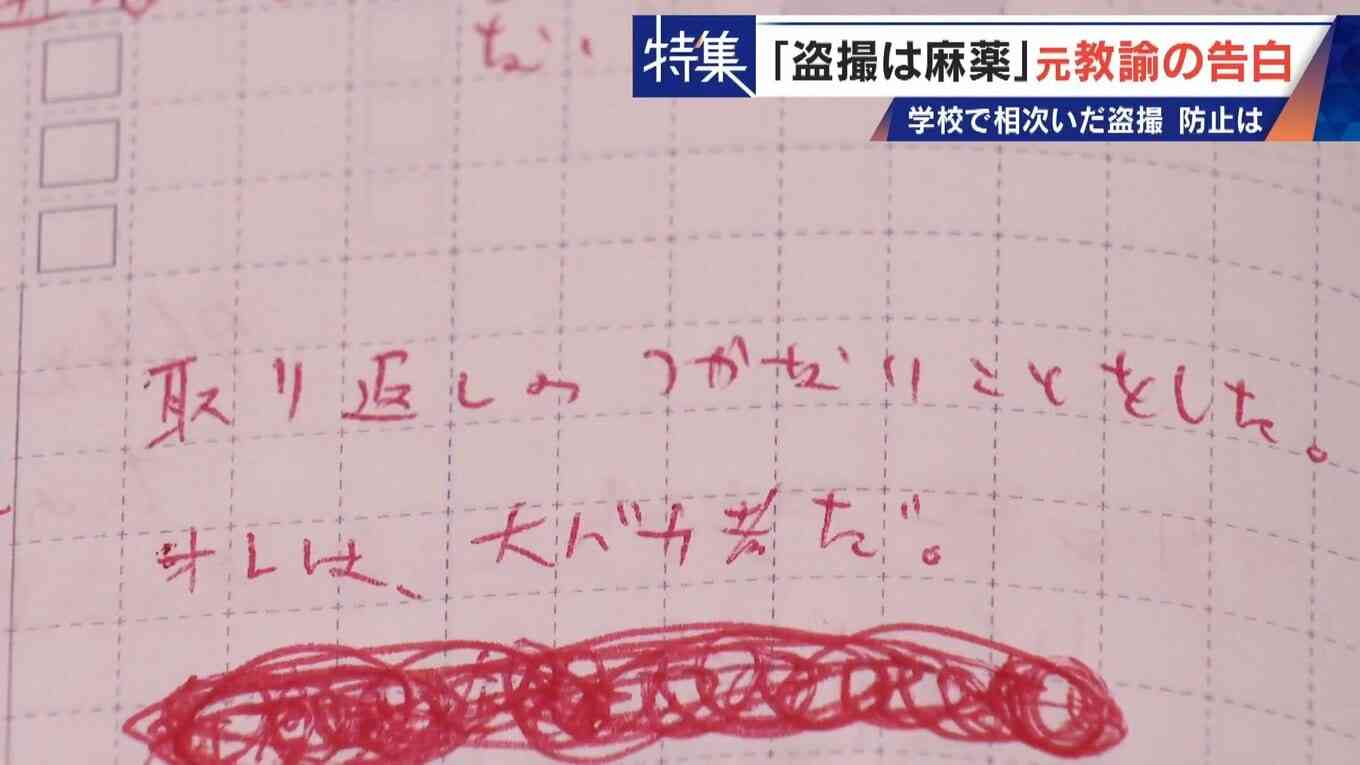 特集
「盗撮は麻薬」元教諭の告白
学校で相次いだ盗撮 防止は
ない
取り返しのつかないことをした。
オレは、大バカ者だ。